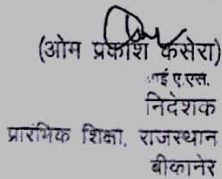 (ओम प्रकाश कसेरा)
आई.ए.एस.
निदेशक
प्रारंभिक शिक्षा, राजस्थान
बीकानेर